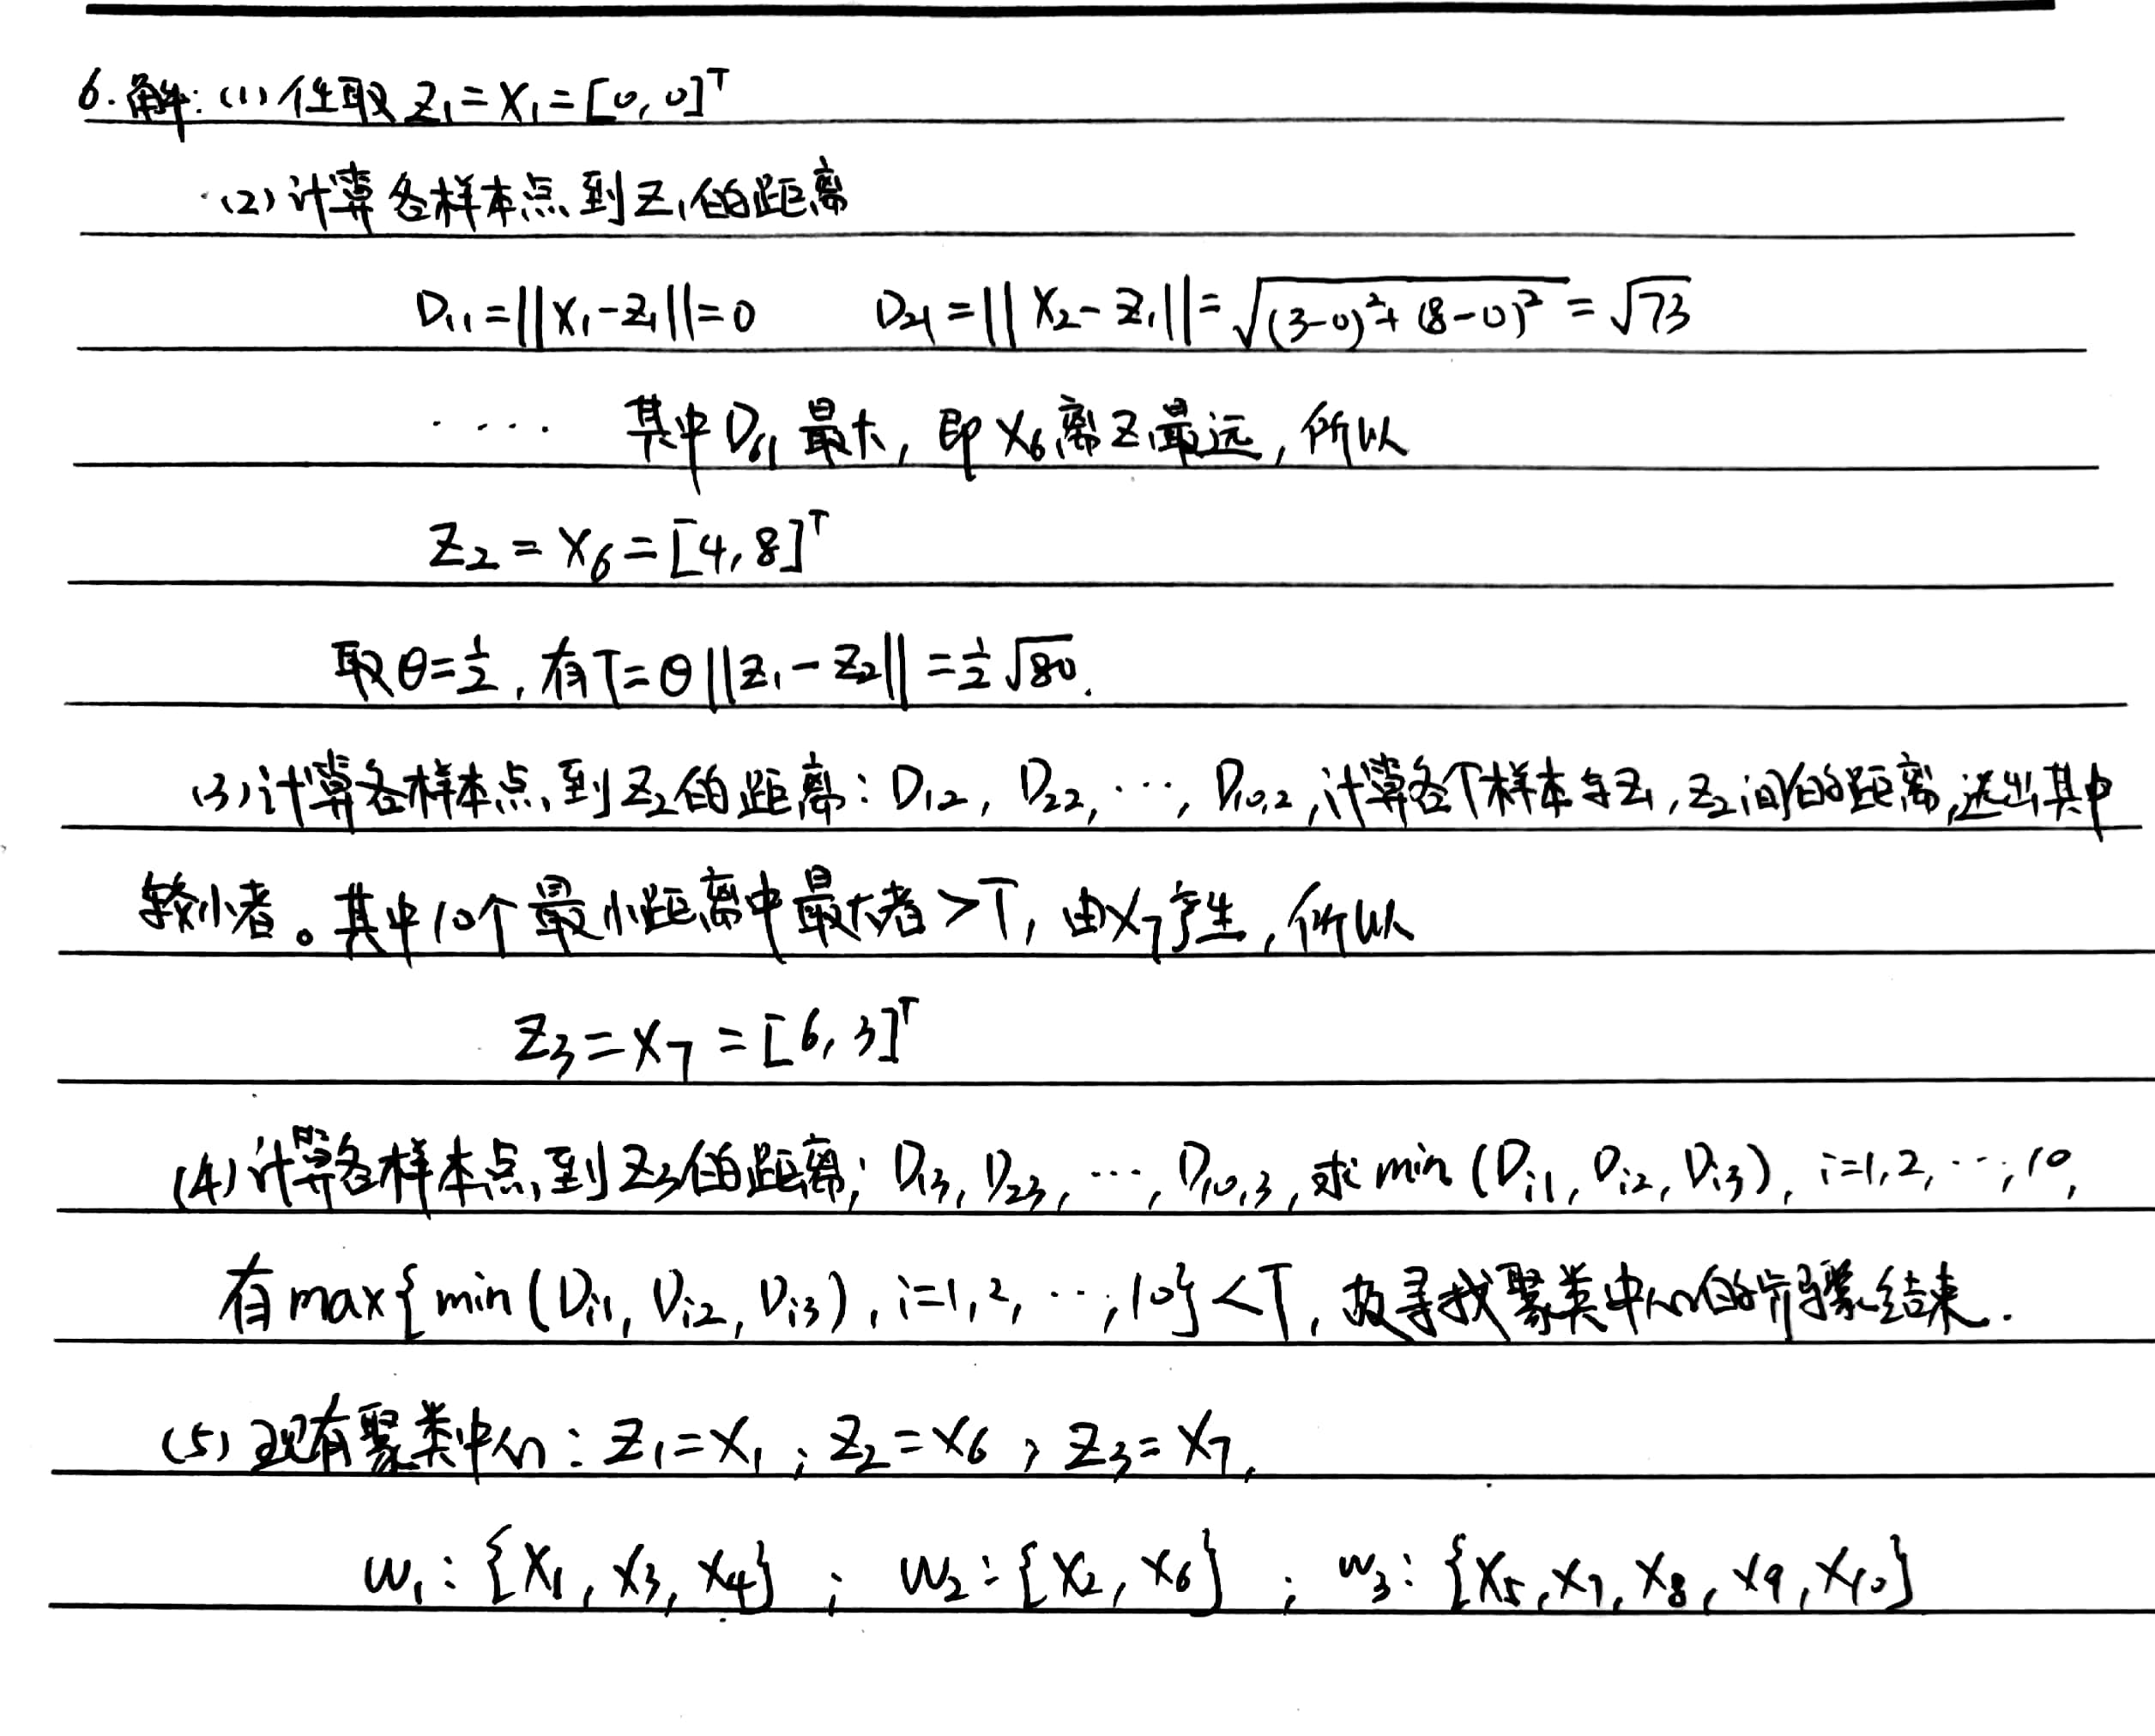 6. 解: (1) 任取 Z₁ = X₁ = [0, 0]ᵀ
(2) 计算各样本点到Z₁的距离
D₁₁ = ||X₁-Z₁|| = 0 D₂₁ = ||X₂-Z₁|| = √((3-0)²+(8-0)²) = √73
···· 其中D₆₁最大, 即X₆离Z₁最远, 所以
Z₂ = X₆ = [4, 8]ᵀ
取θ=½, 有T=θ||Z₁-Z₂|| = ½√80.
(3) 计算各样本点到Z₂的距离: D₁₂, D₂₂, ···, D₁₀,₂, 计算各个样本与Z₁, Z₂间的距离,选出其中
较小者。其中10个最小距离中最大者>T, 由X₇产生, 所以
Z₃ = X₇ = [6, 3]ᵀ
(4) 计算各样本点到Z₃的距离; D₁₃, D₂₃, ···, D₁₀,₃, 求min (Dᵢ₁, Dᵢ₂, Dᵢ₃), i=1, 2, ···, 10,
有max{min(Dᵢ₁, Dᵢ₂, Dᵢ₃), i=1, 2, ···, 10}<T, 故寻找聚类中心的步骤结束.
(5) 现有聚类中心: Z₁=X₁; Z₂=X₆; Z₃=X₇,
w₁: {X₁, X₃, X₄}; w₂: {X₂, X₆}; w₃: {X₅, X₇, X₈, X₉, X₁₀}